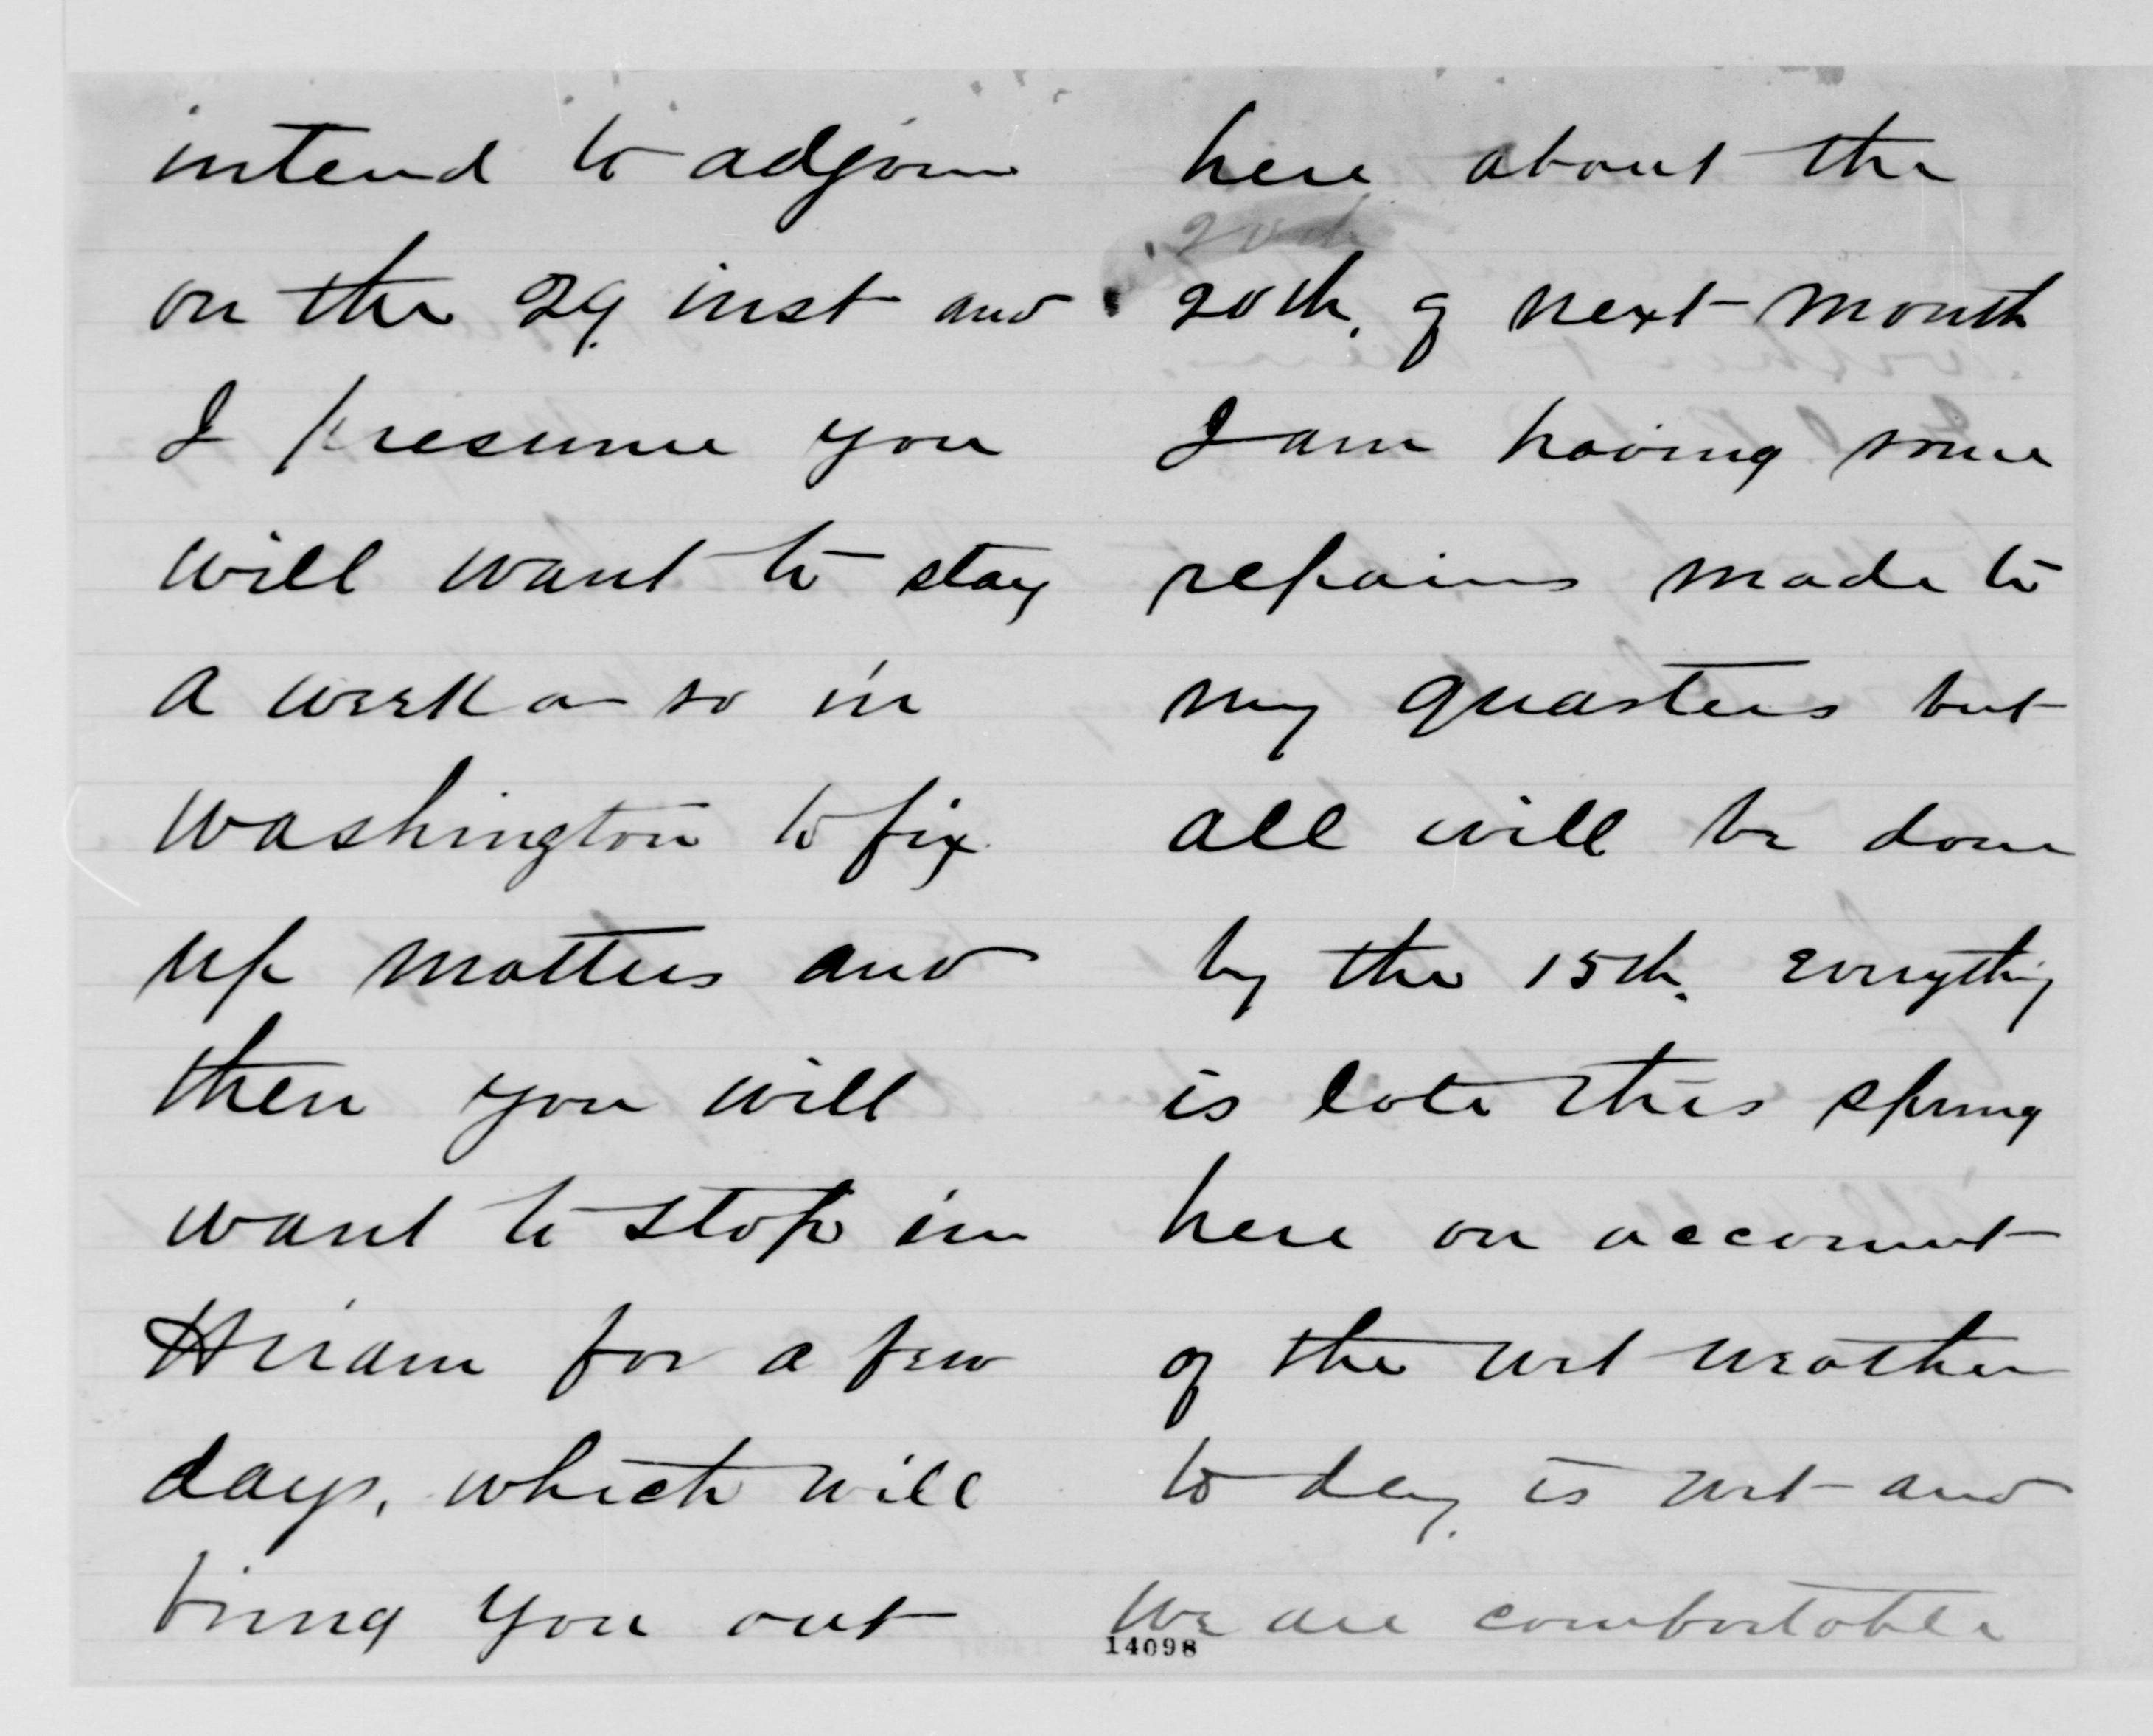 intend to adjourn
on the 29. inst and
I presume you
will want to stay
a week or so in
Washington to fix
up matters and
then you will
want to stop in
Hiram for a few
days, which will
bring you out
here about the
20th
20th. of next month
I am having some
repairs made to
my quarters but
all will be done
by the 15th. Everything
is late this spring
here on account
of the wet weather
to day is wet and
we are comfortable
14098